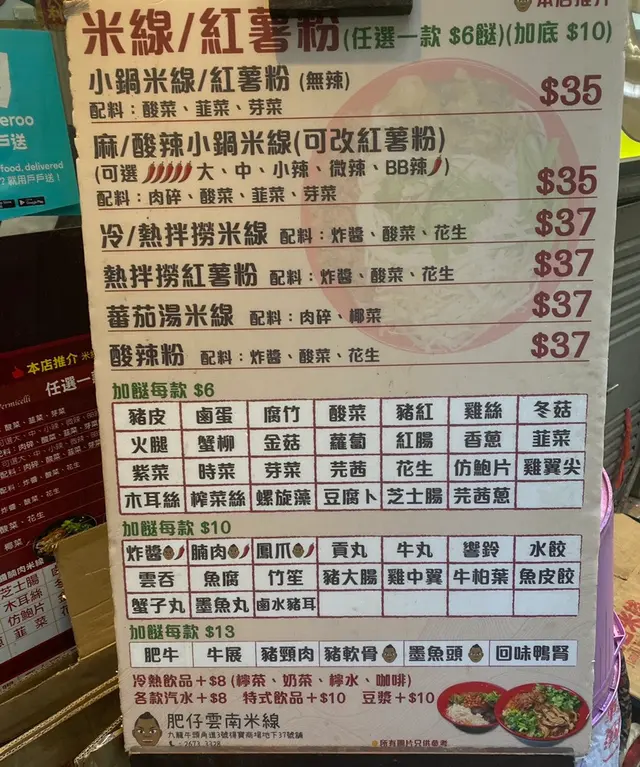 本店推介
米線/紅薯粉(任選一款 $6餸)(加底 $10)
小鍋米線/紅薯粉 (無辣) $35
配料：酸菜、韮菜、芽菜
麻/酸辣小鍋米線(可改紅薯粉)
(可選 大、中、小辣、微辣、BB辣) $35
配料：肉碎、酸菜、韮菜、芽菜
冷/熱拌撈米線 配料：炸醬、酸菜、花生 $37
熱拌撈紅薯粉 配料：炸醬、酸菜、花生 $37
蕃茄湯米線 配料：肉碎、椰菜 $37
酸辣粉 配料：炸醬、酸菜、花生 $37
加餸每款 $6
豬皮 鹵蛋 腐竹 酸菜 豬紅 雞絲 冬菇
火腿 蟹柳 金菇 蘿蔔 紅腸 香蔥 韮菜
紫菜 時菜 芽菜 芫茜 花生 仿鮑片 雞翼尖
木耳絲 榨菜絲 螺旋藻 豆腐卜 芝士腸 芫茜蔥
加餸每款 $10
炸醬 腩肉 鳳爪 貢丸 牛丸 響鈴 水餃
雲吞 魚腐 竹笙 豬大腸 雞中翼 牛柏葉 魚皮餃
蟹子丸 墨魚丸 鹵水豬耳
加餸每款 $13
肥牛 牛展 豬頸肉 豬軟骨 墨魚頭 回味鴨腎
冷熱飲品+$8 (檸菜、奶茶、檸水、咖啡)
各款汽水+$8 特式飲品+$10 豆漿+$10
肥仔雲南米線
九龍牛頭角道3號得寶商場地下37號舖
2673 3328
所有圖片只供參考
eroo
戶送
food, delivered
就用戶戶送！
本店推介
任選一
配料
芝士腸
木耳絲
仿鮑片
韮菜